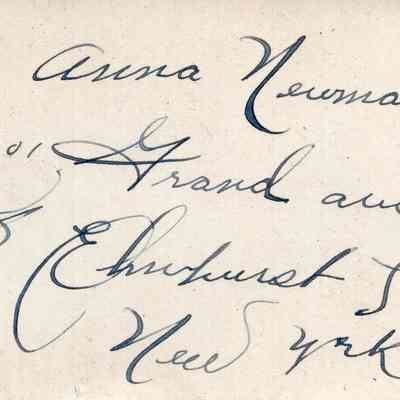 Anna Newma
01 Grand ave
Elmhurst
New York